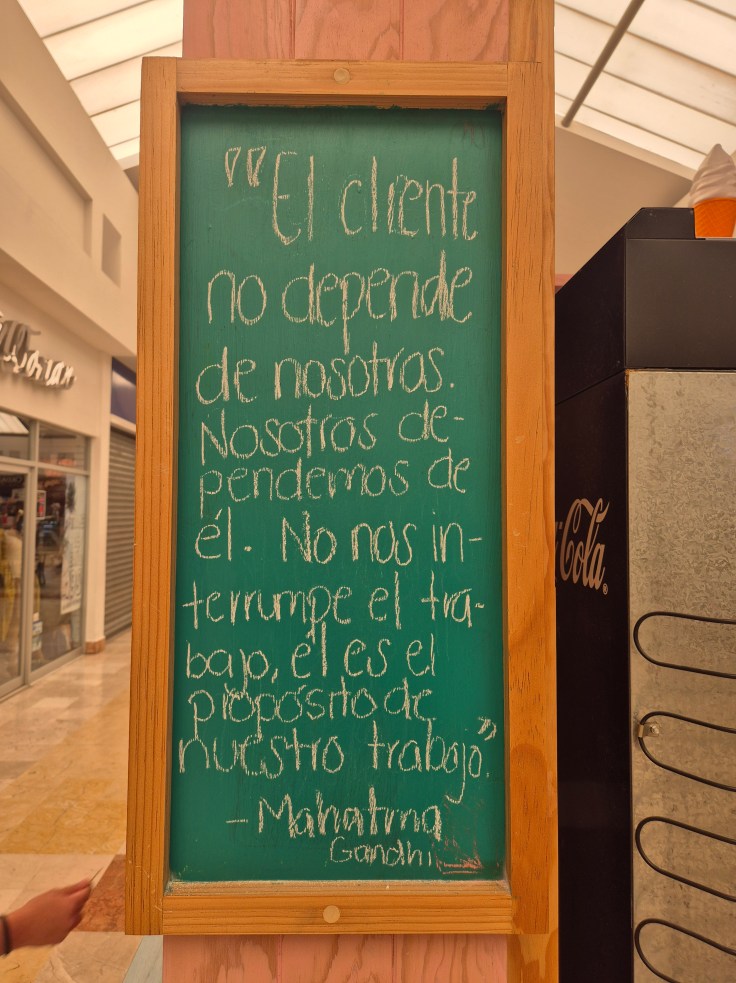 "El cliente
no depende
de nosotros.
Nosotros de-
pendemos de
él. No nos in-
terrumpe el tra-
bajo, él es el
propósito de
nuestro trabajo."
- Mahatma
Gandhi
Cola